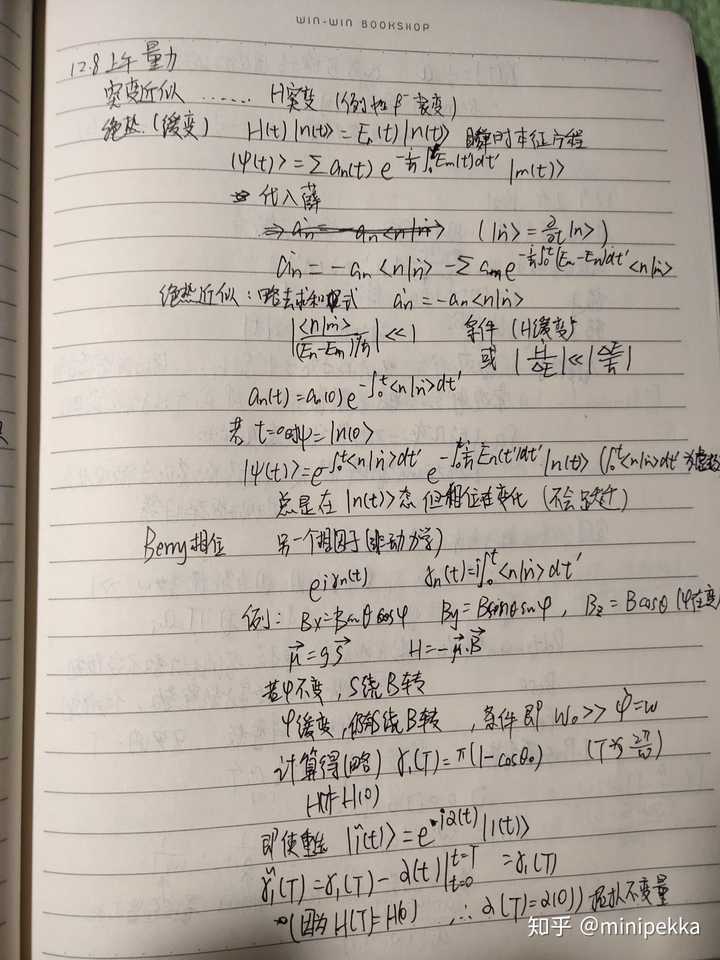 WIN-WIN BOOKSHOP
12.8上午 量力
突变近似 ...... H突变 (例如β⁻衰变)
绝热 (缓变) H(t)|n(t)> = Eₙ(t)|n(t)> 瞬时本征方程
|ψ(t)> = Σ aₙ(t) e^{-i/ħ ∫₀ᵗ Eₘ(t)dt'} |m(t)>
代入薛
⇒ ȧₙ = -aₙ<n|ṅ> (|ṅ> = ∂/∂t|n>)
ȧₙ = -aₙ<n|ṅ> - Σ aₘ e^{-i/ħ ∫₀ᵗ(Eₘ-Eₙ)dt'} <n|ṁ>
绝热近似: 略去求和式 ȧₙ = -aₙ<n|ṅ>
|<n|ṁ>/((Eₙ-Eₘ)/ħ)| ≪ 1 条件 (H缓变)
或 |Ḣ/ΔE| ≪ |ΔE/ħ|
aₙ(t) = aₙ(0) e^{-∫₀ᵗ<n|ṅ>dt'}
若 t=0时ψ=|n(0)>
|ψ(t)> = e^{-∫₀ᵗ<n|ṅ>dt'} e^{-∫₀ᵗ i/ħ Eₙ(t')dt'} |n(t)> (∫₀ᵗ<n|ṅ>dt' 为虚数
总是在|n(t)>态 但相位在变化 (不会跃迁)
Berry相位 另一个相因子(非动力学)
e^{iγₙ(t)} γₙ(t) = i∫₀ᵗ<n|ṅ>dt'
例: Bx = B sinθ cosφ By = B sinθ sinφ, Bz = B cosθ (φ在变)
μ⃗ = gS⃗ H = -μ⃗·B⃗
若φ不变, S绕B转
φ缓变, 仍绕B转, 条件即 ω₀ >> φ̇ = ω
计算得(略) γ₁(T) = π(1-cosθ₀) (T为 2π/ω)
H(T)=H(0)
即使 |ĩ(t)> = e^{iα(t)}|1(t)>
γ̃₁(T) = γ₁(T) - α(t)|_{t=0}^{t=T} = γ₁(T)
(因为H(T)=H(0), ∴ α(T)=α(0)) 拓扑不变量
知乎 @minipekka